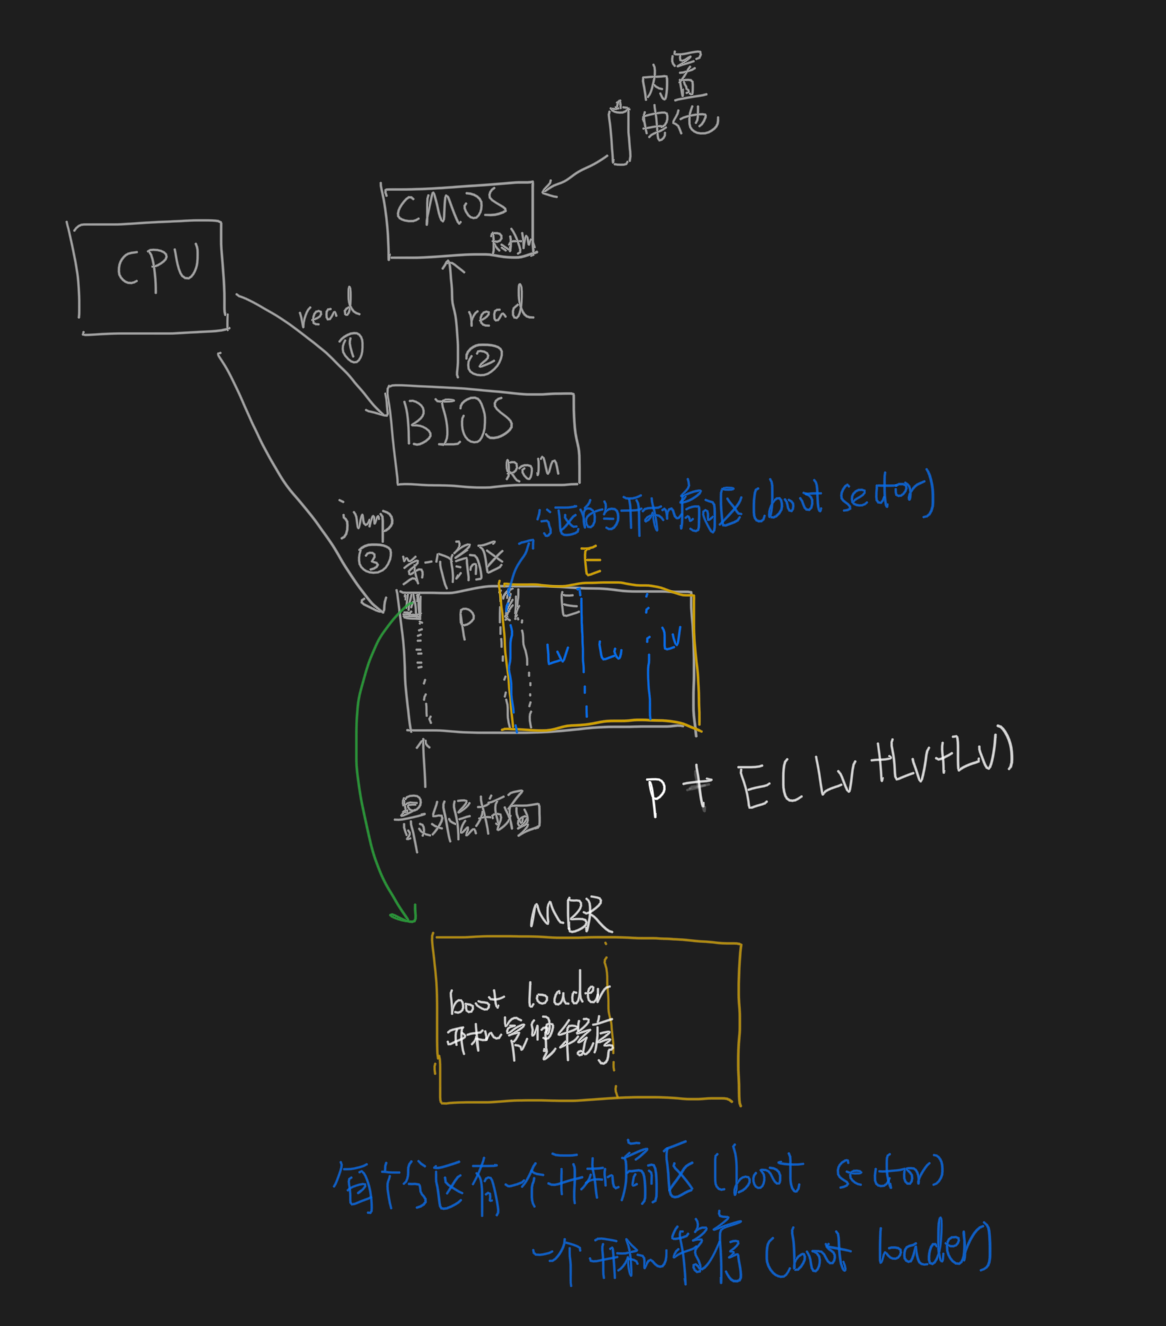 内置
电池
CMOS
RAM
CPU
read
①
read
②
BIOS
ROM
分区的开机扇区(boot sector)
jump
③
第一个扇区
E
P
E
LV
LV
LV
P + E(LV+LV+LV)
最外层柱面
MBR
boot loader
开机管理程序
每个分区有一个开机扇区(boot sector)
一个开机程序(boot loader)